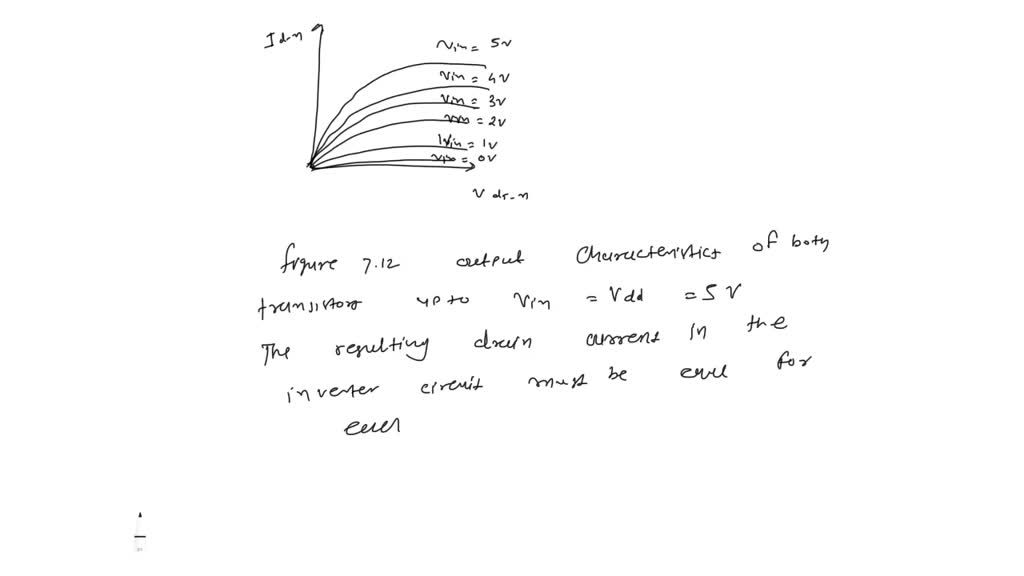 Id-n
Vin = 5V
Vin = 4V
Vin = 3V
Vin = 2V
Vin = 1V
Vin = 0V
V ds-n
figure 7.12 output characteristics of both
transistors up to Vin = Vdd = 5 V
The resulting drain current in the
inverter circuit must be for